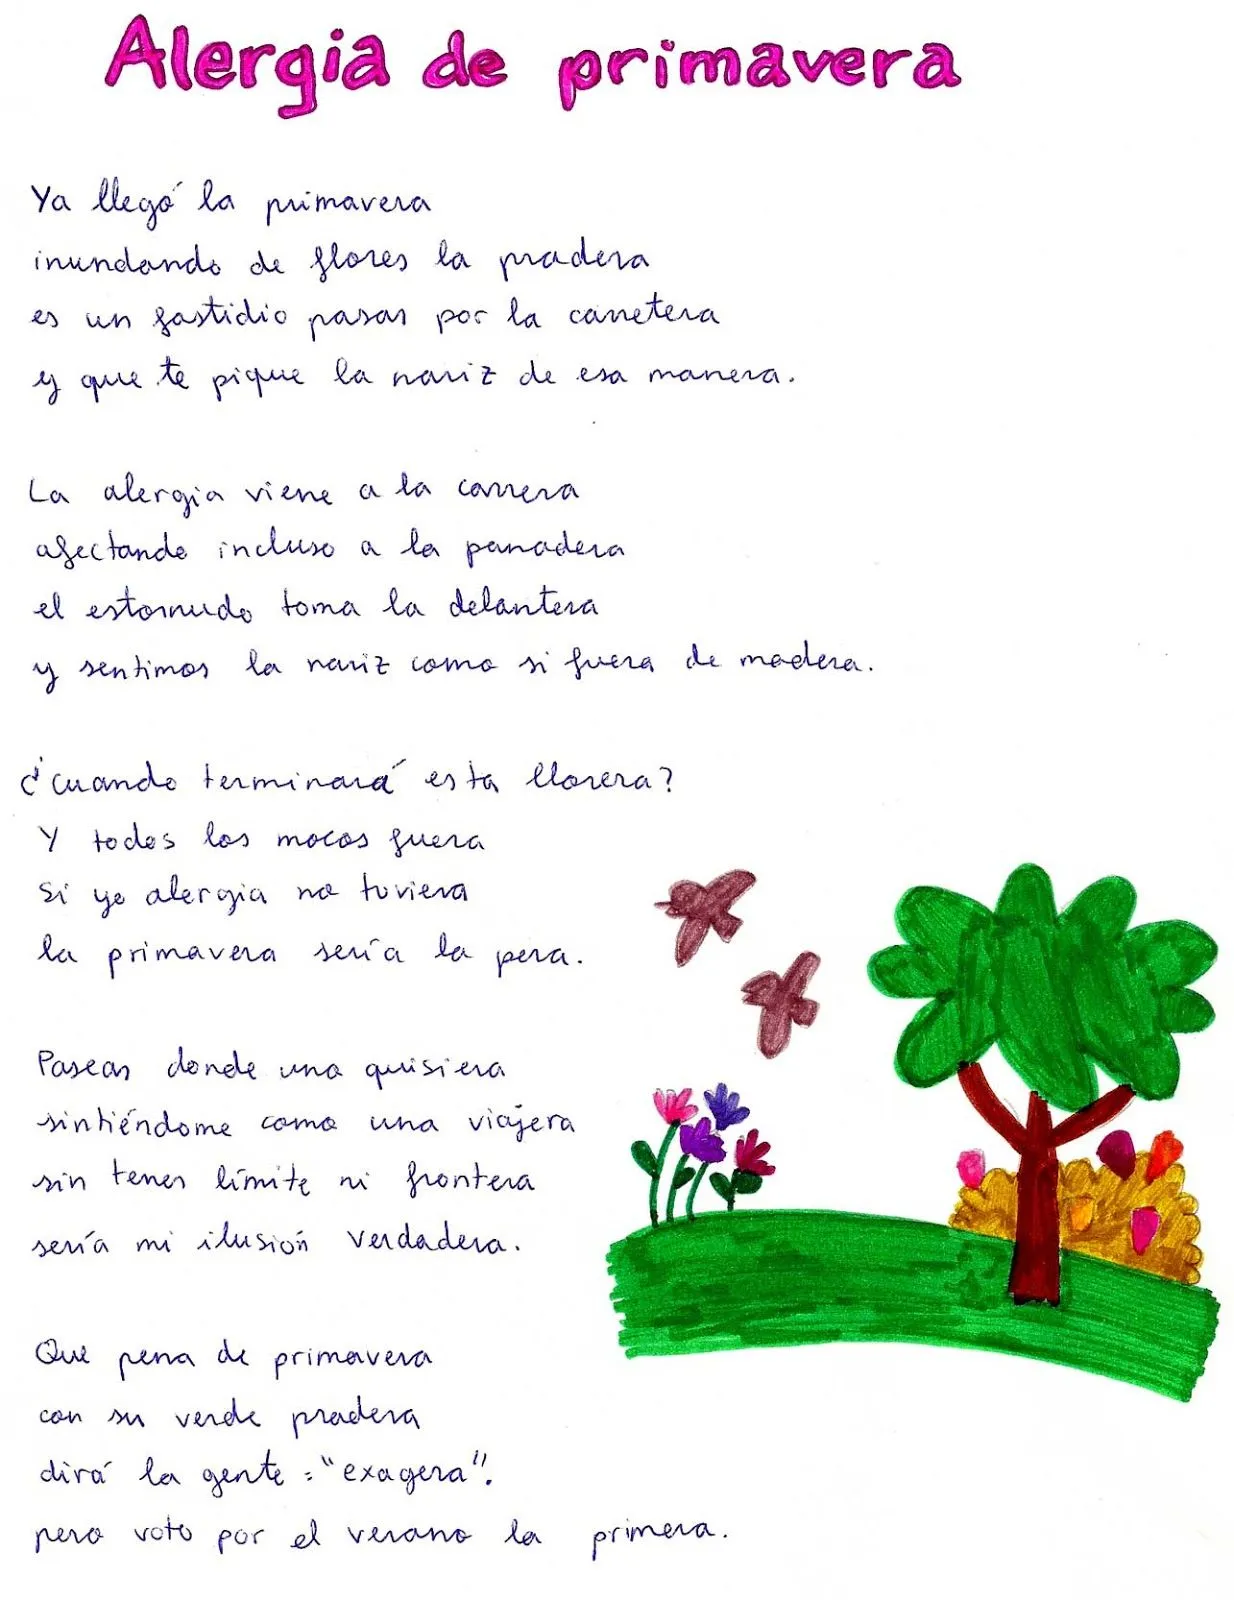 Alergia de primavera
Ya llegó la primavera
inundando de flores la pradera
es un fastidio pasar por la carretera
y que te pique la nariz de esa manera.
La alergia viene a la carrera
afectando incluso a la panadera
el estornudo toma la delantera
y sentimos la nariz como si fuera de madera.
¿Cuando terminará esta llorera?
Y todos los mocos fuera
Si yo alergia no tuviera
la primavera sería la pera.
Pasear donde una quisiera
sintiéndome como una viajera
sin tener límite ni frontera
sería mi ilusión verdadera.
Que pena de primavera
con su verde pradera
dirá la gente: "exagera".
pero voto por el verano la primera.